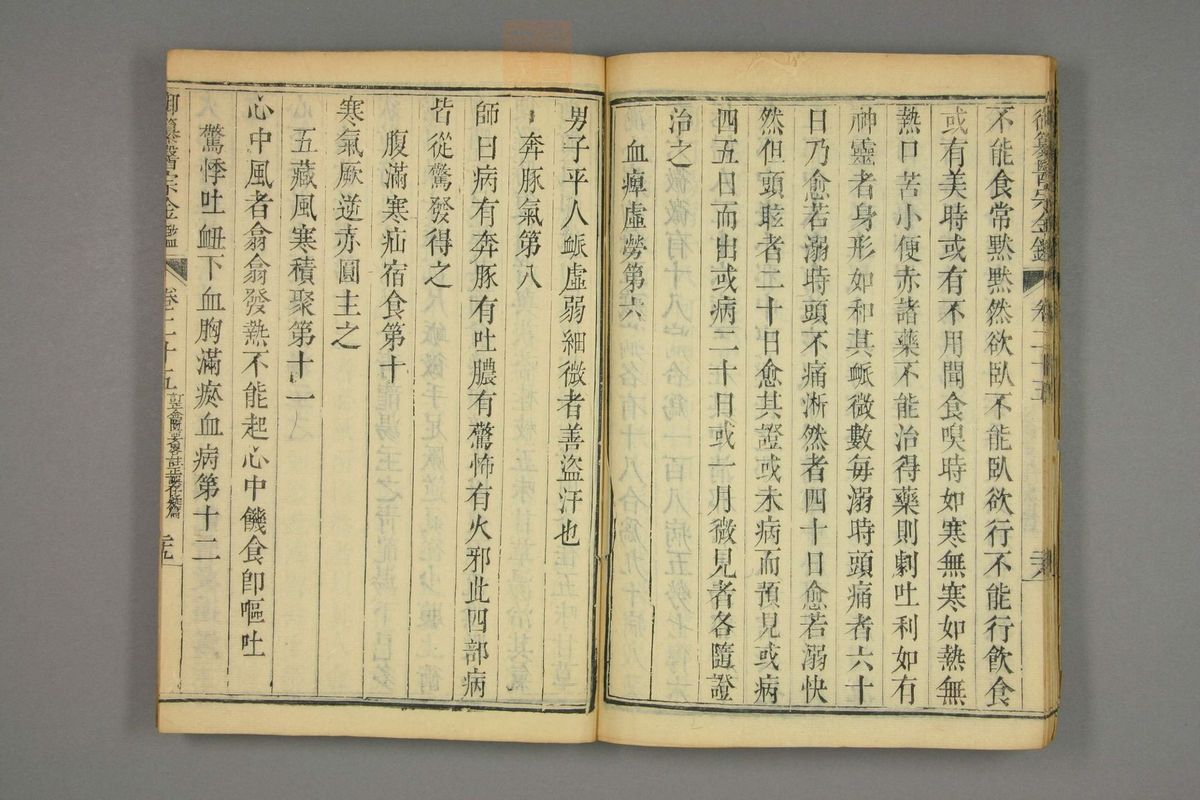 御纂醫宗金鑑 卷二十五
不能食常默默然欲臥不能臥欲行不能行飲食
或有美時或有不用聞食嗅時如寒無寒如熱無
熱口苦小便赤諸藥不能治得藥則劇吐利如有
神靈者身形如和其脈微數每溺時頭痛者六十
日乃愈若溺時頭不痛淅然者四十日愈若溺快
然但頭眩者二十日愈其證或未病而預見或病
四五日而出或病二十日或一月微見者各隨證
治之
血痺虛勞第六
男子平人脈虛弱細微者善盜汗也
奔豚氣第八
師曰病有奔豚有吐膿有驚怖有火邪此四部病
皆從驚發得之
腹滿寒疝宿食第十
寒氣厥逆赤圓主之
五藏風寒積聚第十一
心中風者翕翕發熱不能起心中饑食卽嘔吐
驚悸吐衄下血胸滿瘀血病第十二
御纂醫宗金鑑 卷二十五